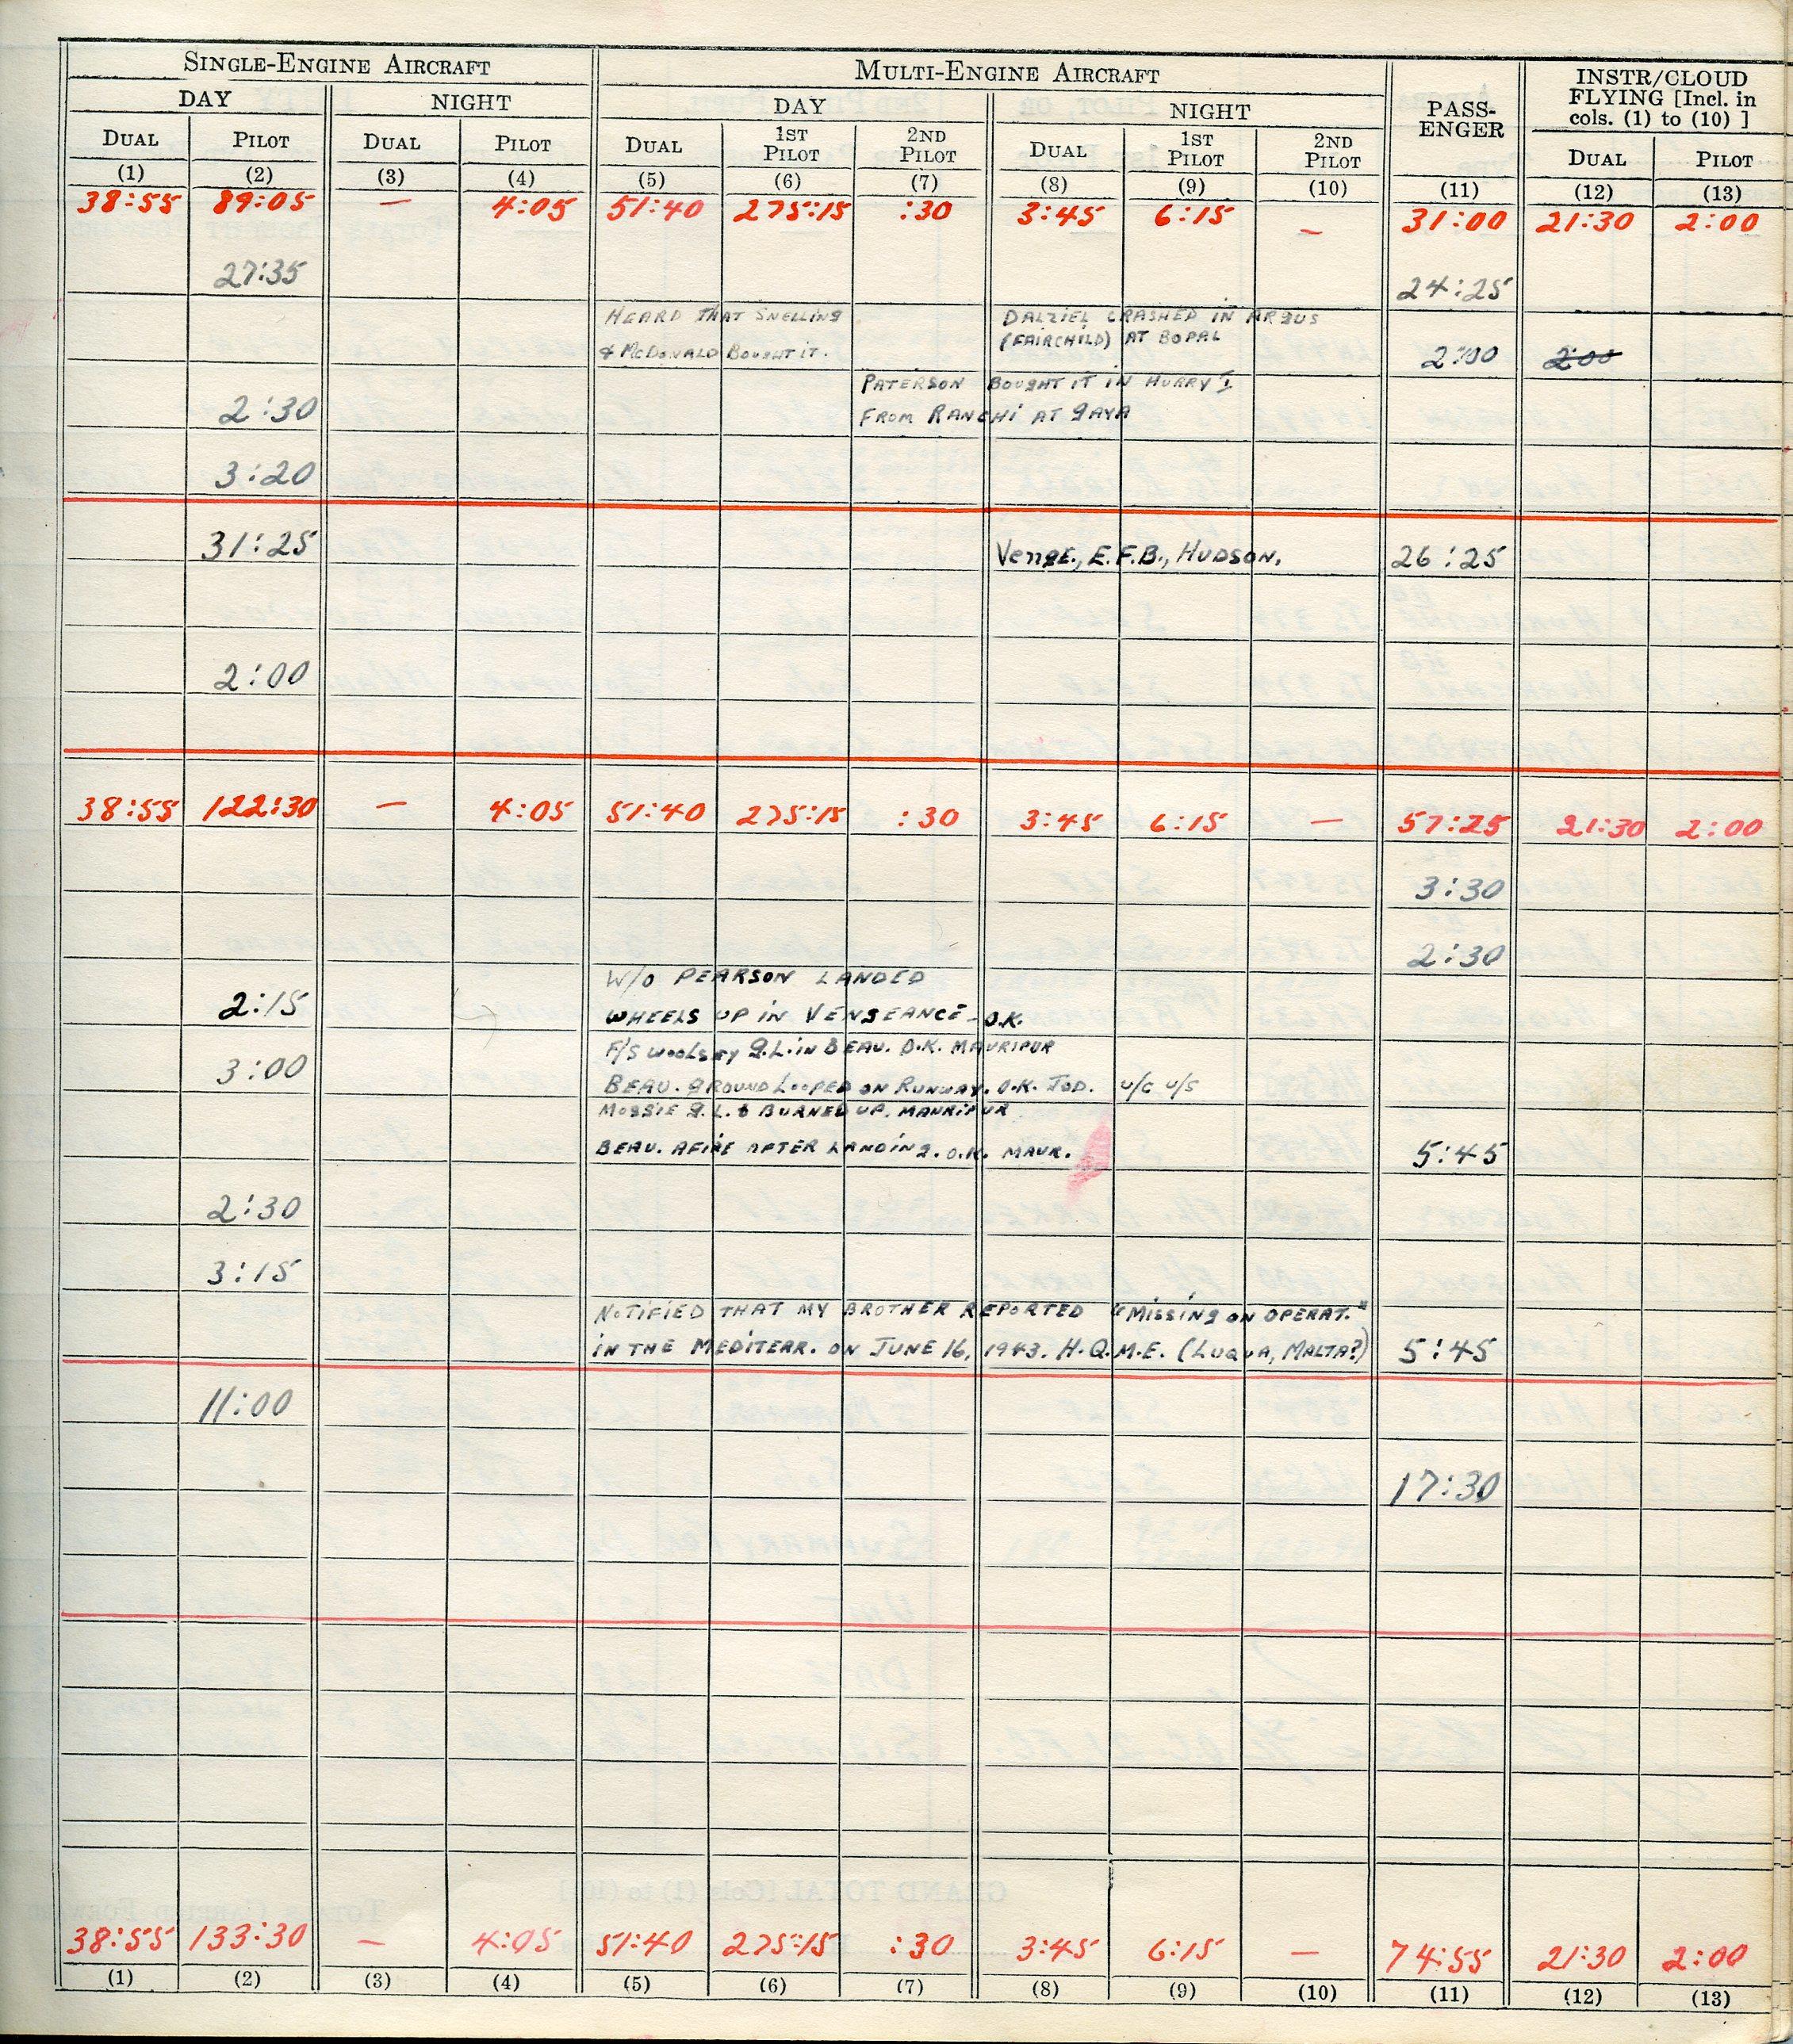 SINGLE-ENGINE AIRCRAFT MULTI-ENGINE AIRCRAFT PASS-ENGER INSTR/CLOUD FLYING [Incl. in cols. (1) to (10) ]
DAY NIGHT DAY NIGHT
DUAL PILOT DUAL PILOT DUAL 1ST PILOT 2ND PILOT DUAL 1ST PILOT 2ND PILOT DUAL PILOT
(1) (2) (3) (4) (5) (6) (7) (8) (9) (10) (11) (12) (13)
38:55 89:05 — 4:05 51:40 275:15 :30 3:45 6:15 — 31:00 21:30 2:00
27:35 24:25
HEARD THAT SNELLING DALZIEL CRASHED IN ARGUS
& McDONALD BOUGHT IT. (FAIRCHILD) AT BOPAL 2:00 2:00
PATERSON BOUGHT IT IN HURRY I
2:30 FROM RANCHI AT GAYA
3:20
31:25 Venge., E.F.B., HUDSON. 26:25
2:00
38:55 122:30 — 4:05 51:40 275:15 :30 3:45 6:15 — 57:25 21:30 2:00
3:30
2:30
W/O PEARSON LANDED
2:15 WHEELS UP IN VENGEANCE - O.K.
F/S WOOLSEY G.L. IN BEAU. O.K. MAURIPUR
3:00 BEAU. GROUND LOOPED ON RUNWAY. O.K. JOD. U/C U/S
MOSSIE G.L. & BURNED UP. MAURIPUR
BEAU. AFIRE AFTER LANDING. O.K. MAUR. 5:45
2:30
3:15
NOTIFIED THAT MY BROTHER REPORTED "MISSING ON OPERAT."
IN THE MEDITERR. ON JUNE 16, 1943. H.Q.M.E. (LUQUA, MALTA?) 5:45
11:00
17:30
38:55 133:30 — 4:05 51:40 275:15 :30 3:45 6:15 — 74:55 21:30 2:00
(1) (2) (3) (4) (5) (6) (7) (8) (9) (10) (11) (12) (13)